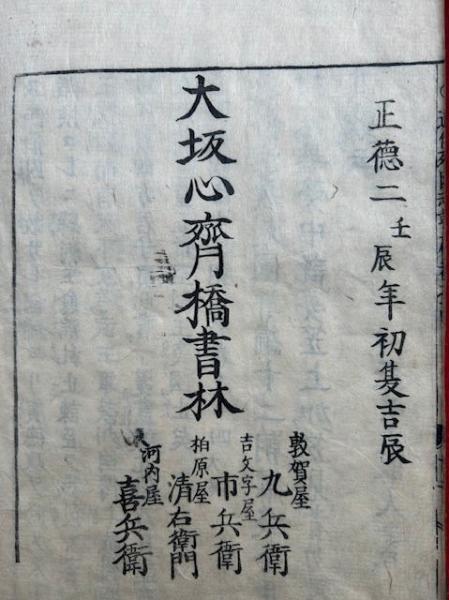 正德二壬辰年初夏吉辰
大坂心齊橋書林
敦賀屋九兵衛
吉文字屋市兵衛
柏原屋清右衛門
河内屋喜兵衛